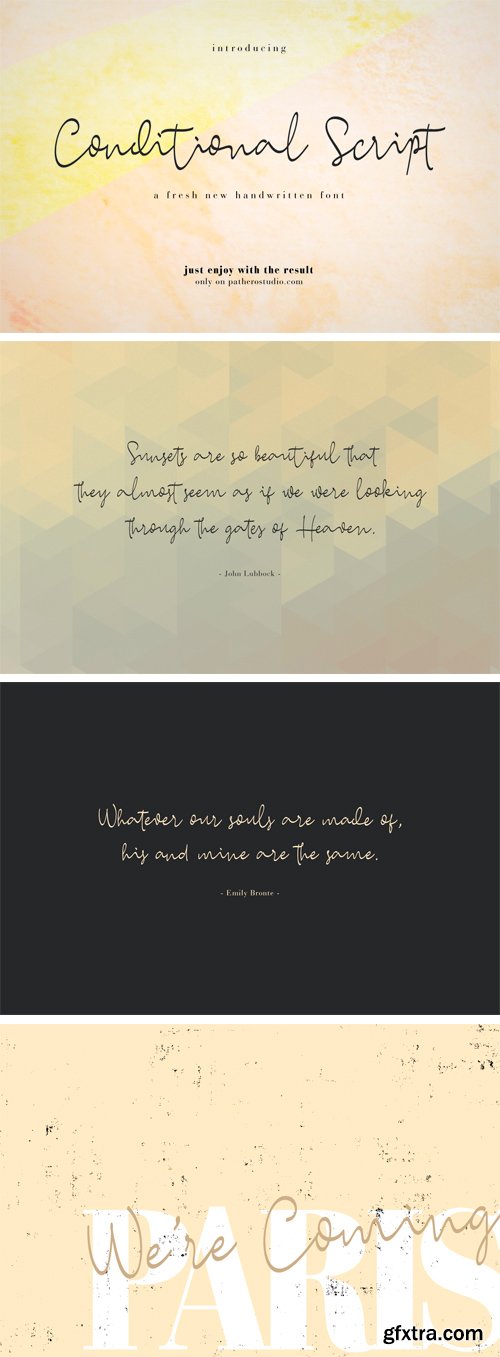 introducing
Conditional Script
a fresh new handwritten font
just enjoy with the result
only on patherostudio.com
Sunsets are so beautiful that
they almost seem as if we were looking
through the gates of Heaven.
- John Lubbock -
Whatever our souls are made of,
his and mine are the same.
- Emily Bronte -
We're Coming
PARIS
gfxtra.com